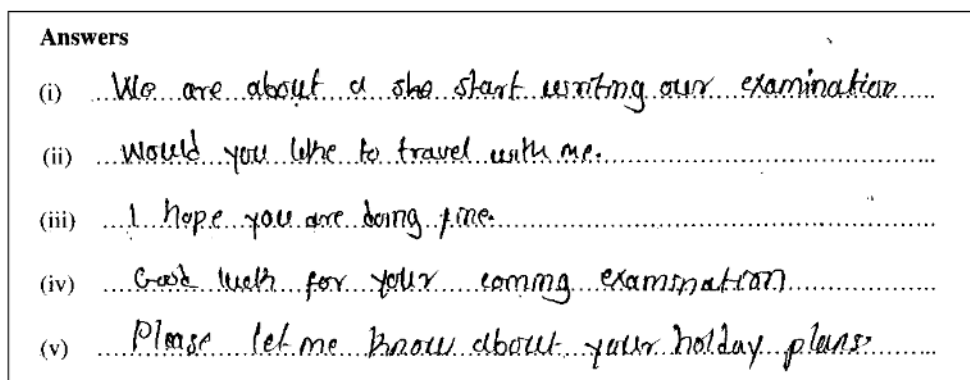 Answers
(i) We are about a she start writing our examination
(ii) Would you like to travel with me.
(iii) I hope you are doing fine.
(iv) Good luck for your coming examination
(v) Please let me know about your holday plans.